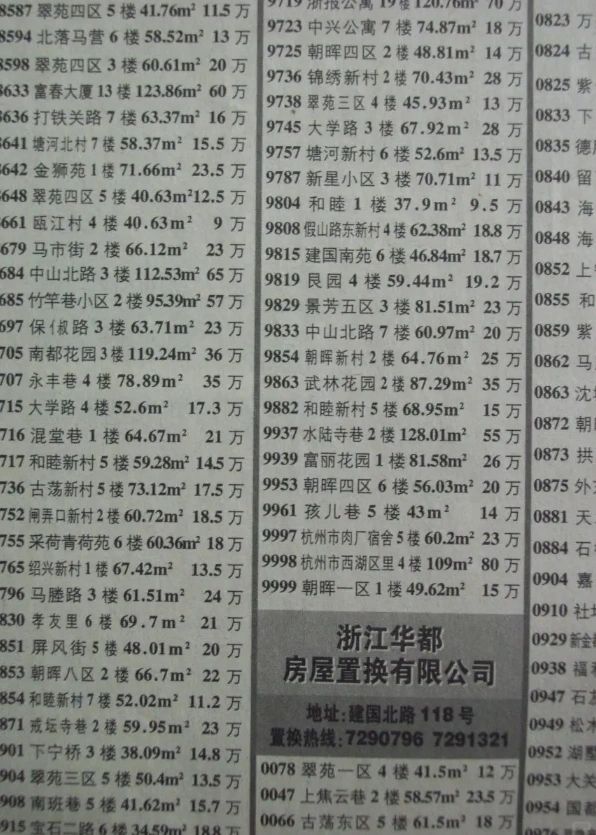 8587 翠苑四区 5 楼 41.76m² 11.5 万
8594 北落马营 6 楼 58.52m² 13 万
8598 翠苑四区 3 楼 60.61m² 20 万
8633 富春大厦 13 楼 123.86m² 60 万
8636 打铁关路 7 楼 63.37m² 16 万
8641 塘河北村 7 楼 58.37m² 15.5 万
8642 金狮苑 1 楼 71.66m² 23.5 万
8648 翠苑四区 5 楼 40.63m² 12.5 万
661 瓯江村 4 楼 40.63m² 9 万
679 马市街 2 楼 66.12m² 23 万
684 中山北路 3 楼 112.53m² 65 万
685 竹竿巷小区 2 楼 95.39m² 57 万
697 保俶路 3 楼 63.71m² 23 万
705 南都花园 3 楼 119.24m² 36 万
707 永丰巷 4 楼 78.89m² 35 万
715 大学路 4 楼 52.6m² 17.3 万
716 混堂巷 1 楼 64.67m² 21 万
717 和睦新村 5 楼 59.28m² 14.5 万
736 古荡新村 5 楼 73.12m² 17.5 万
752 闸弄口新村 2 楼 60.72m² 18.5 万
755 采荷青荷苑 6 楼 60.36m² 18 万
765 绍兴新村 1 楼 67.42m² 13.5 万
796 马塍路 3 楼 61.51m² 24 万
830 孝友里 6 楼 69.7m² 21 万
851 屏风街 5 楼 48.01m² 20 万
853 朝晖八区 2 楼 66.7m² 22 万
854 和睦新村 7 楼 52.02m² 11.2 万
871 戒坛寺巷 2 楼 59.95m² 23 万
901 下宁桥 3 楼 38.09m² 14.8 万
904 翠苑三区 5 楼 50.4m² 13.5 万
908 南班巷 5 楼 41.62m² 15.7 万
915 宝石二路 6 楼 34.59m² 18.8 万
9719 浙报公寓 19 楼 120.76m² 70 万
9723 中兴公寓 7 楼 74.87m² 18 万
9725 朝晖四区 2 楼 48.81m² 14 万
9736 锦绣新村 2 楼 70.43m² 28 万
9738 翠苑三区 4 楼 45.93m² 13 万
9745 大学路 3 楼 67.92m² 28 万
9757 塘河新村 6 楼 52.6m² 13.5 万
9787 新星小区 3 楼 70.71m² 11 万
9804 和睦 1 楼 37.9m² 9.5 万
9808 假山路东新村 4 楼 62.38m² 18.8 万
9815 建国南苑 6 楼 46.84m² 18.7 万
9819 艮园 4 楼 59.44m² 19.2 万
9829 景芳五区 3 楼 81.51m² 23 万
9833 中山北路 7 楼 60.97m² 20 万
9854 朝晖新村 2 楼 64.76m² 25 万
9863 武林花园 2 楼 87.29m² 35 万
9882 和睦新村 5 楼 68.95m² 15 万
9937 水陆寺巷 2 楼 128.01m² 55 万
9939 富丽花园 1 楼 81.58m² 26 万
9953 朝晖四区 6 楼 56.03m² 20 万
9961 孩儿巷 5 楼 43m² 14 万
9997 杭州市肉厂宿舍 5 楼 60.2m² 23 万
9998 杭州市西湖区里 4 楼 109m² 80 万
9999 朝晖一区 1 楼 49.62m² 15 万
浙江华都
房屋置换有限公司
地址:建国北路 118 号
置换热线:7290796 7291321
0078 翠苑一区 4 楼 41.5m² 12 万
0047 上焦云巷 2 楼 58.57m² 23.5 万
0066 古荡东区 5 楼 61.5m² 18 万
0823 万
0824 古
0825 紫
0833 下
0835 德
0840 留
0843 海
0848 海
0852 上
0855 和
0859 紫
0862 马
0863 沈
0872 朝
0873 拱
0875 外
0881 天
0884 石
0904 嘉
0910 社
0929 新金
0938 福
0947 石
0949 松木
0952 湖墅
0953 大关
0954 国都